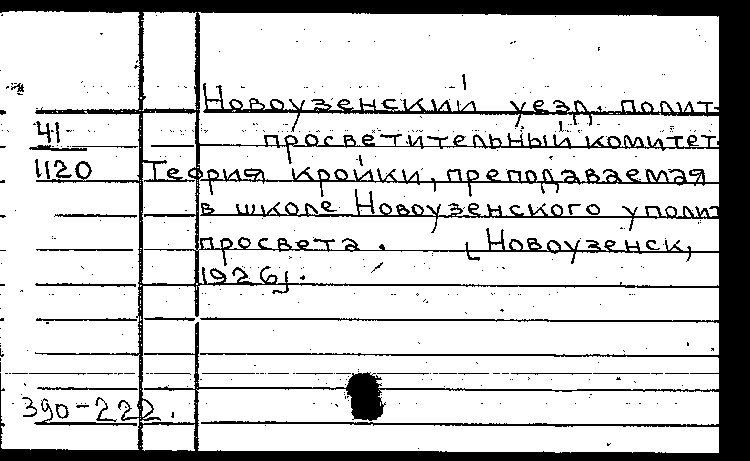 Новоузенский уезд. полит-
41
просветительный комитет.
1120
Теория кройки, преподаваемая
в школе Новоузенского уполит
просвета. [Новоузенск,
1926].
390-222.